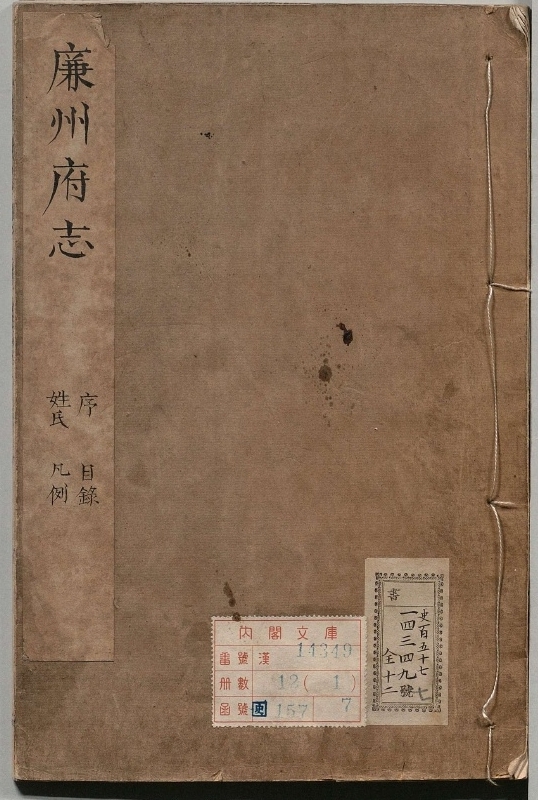 廉州府志
序 目錄
姓氏 凡例
內閣文庫
番號 漢 14349
冊數 12(1)
函號 史 157 7
書
史百五十七 七
一四三四九號
全十二